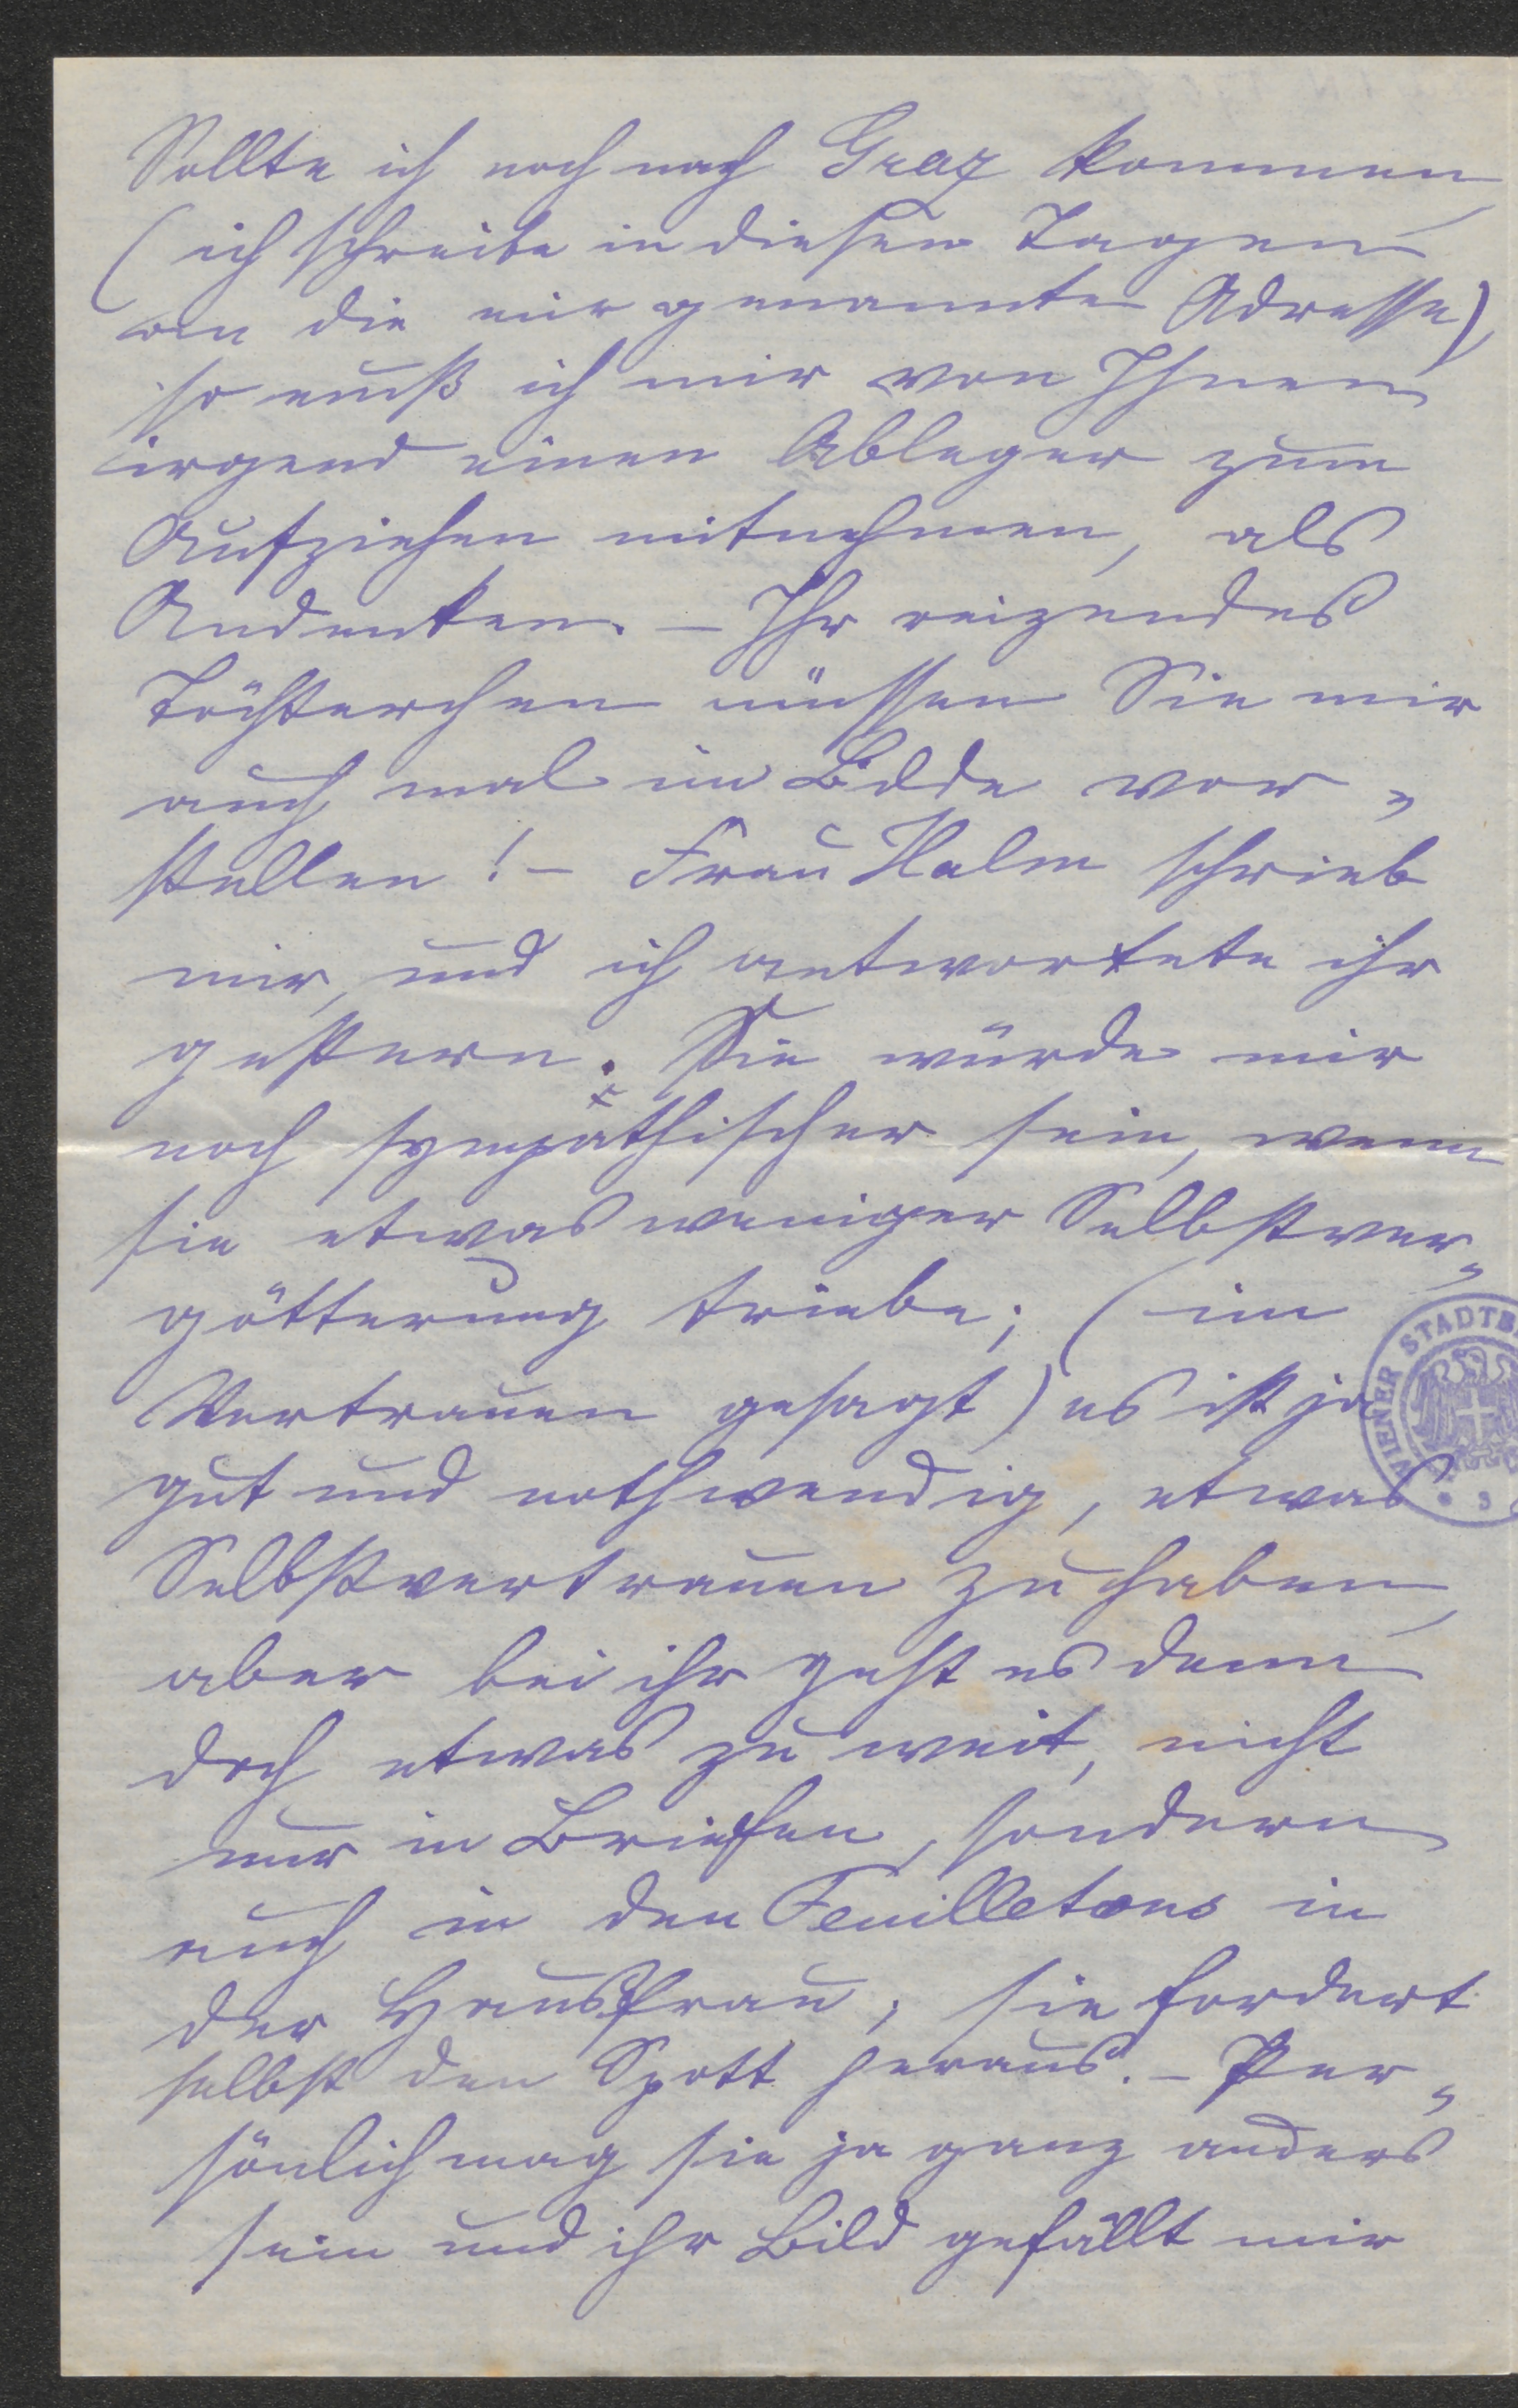 Sollte ich noch nach Graz kommen,
(ich schreibe in diesen Tagen
an die mir genannte Adresse)
so muß ich mir von Ihnen
irgend einen Ableger zum
Aufziehen mitnehmen, als
Andenken. – Ihr reizendes
Töchterchen müssen Sie mir
auch mal im Bilde vor„
stellen! – Frau Halm schrieb
mir, und ich antwortete ihr
gestern. Sie würde mir
noch sympathischer sein, wenn
sie etwas weniger Selbstver„
götterung triebe; (im
Vertrauen gesagt) es ist ja
gut und nothwendig, etwas
Selbstvertrauen zu haben,
aber bei ihr geht es denn
doch etwas zu weit, nicht
nur in Briefen, sondern
auch in den Feuilletons in
der Hausfrau; sie fordert
selbst den Spott heraus. – Per„
sönlich mag sie ja ganz anders
sein und ihr Bild gefällt mir
WIENER STADTB